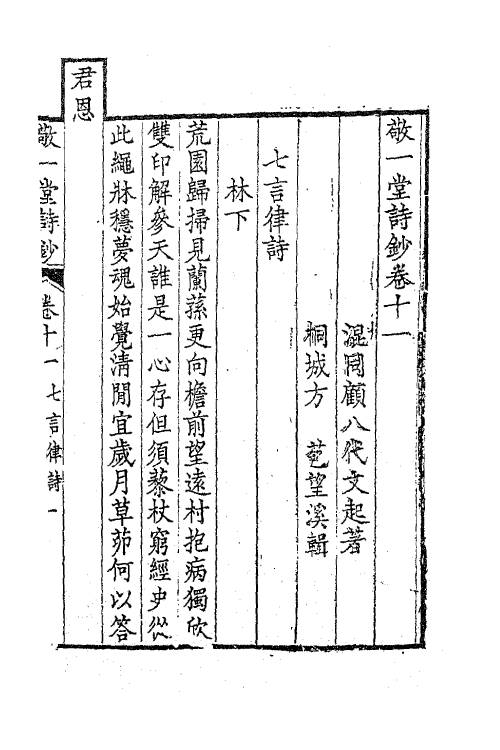 敬一堂詩鈔卷十一
混同顧八代文起著
桐城方 苞望溪輯
七言律詩
林下
荒園歸掃見蘭蓀更向檐前望遠村抱病獨欣
雙印解參天誰是一心存但須藜杖窮經史從
此繩牀穩夢魂始覺清閒宜歲月草茆何以答
君恩
敬一堂詩鈔 卷十一 七言律詩 一